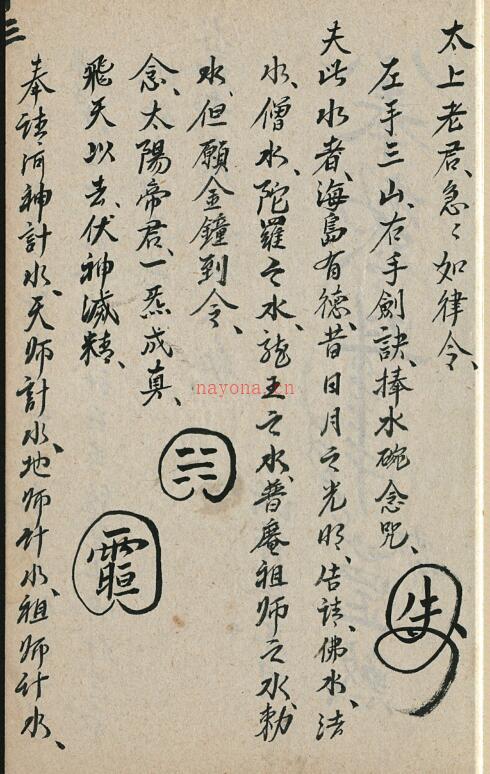 太上老君、急〻如律令、
左手三山、右手劍訣、捧水碗念咒、
夫此水者、海島有德、昔日月之光明、告請佛水、法
水、僧水、陀羅之水、龍王之水、普庵祖師之水、勅
水、但願金鐘到令、
念、太陽帝君、一炁成真、
飛天以去、伏神滅精、
奉請河神計水、天師計水、地師計水、祖師計水、
三
nayona.cn